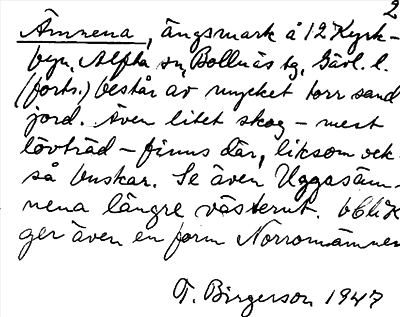 2
Ämnena, ängsmark å 12 Kyrk-
byn, Alfta sn, Bollnäs tg, Gävl. l.
(forts.) består av mycket torr sand
jord. Även litet skog - mest
lövträd - finns där, liksom ock
så buskar. Se även Uggsäm-
nena längre västerut.
ger även en form Norromämnen
T. Birgerson 1947